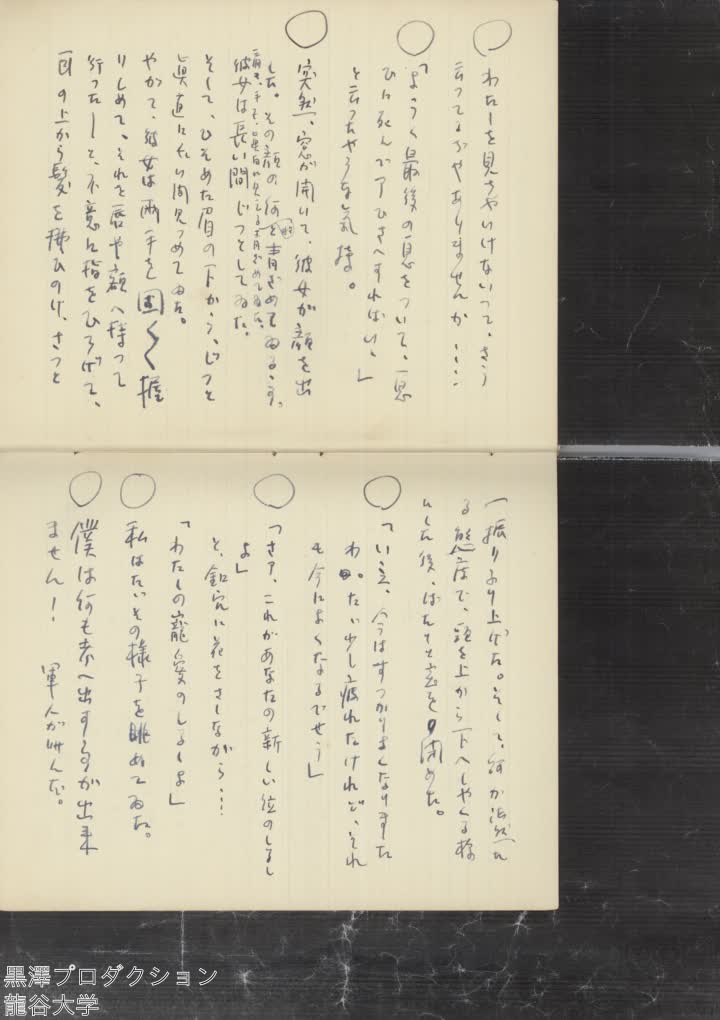 わたしを見ちやいけないつて、さう
云つてるぢやありませんか……
「ようく最後の息をついて、一思
ひに死んでアひさへすればいゝ」
と云つちやうな気持。
突然、窓が開いて、彼女が顔を出
した。その顔の何と青ざめてゐる
肩も、手も、
彼女は長い間じつとしてゐた。
そして、ひそめた眉の下から、じつと
眞直にたい間見つめてゐた。
やがて、彼女は両手を固く〱握
りしめて、それを唇や額へ持つて
行つた――と、不意に指をひろげて、
耳の上から髪を拂ひのけ、さつと
一振りふり上げた。そして、何か決然た
る態度で、頭を上から下へしやくる様
にした後、ばたりと窓を閉めた。
「いゝえ、今はすつかりよくなりました
わ。たゞ少し疲れたけれど、それ
も今によくなるでせう」
「さア、これがあなたの新しい位のしるし
よ」
と、釦穴に花をさしながら…
「わたしの寵愛のしるしよ」
私はたゞその様子を眺めてゐた。
僕は何も考へ出す事が出来
ません! 軍人が叫んだ。
黒澤プロダクション
龍谷大学